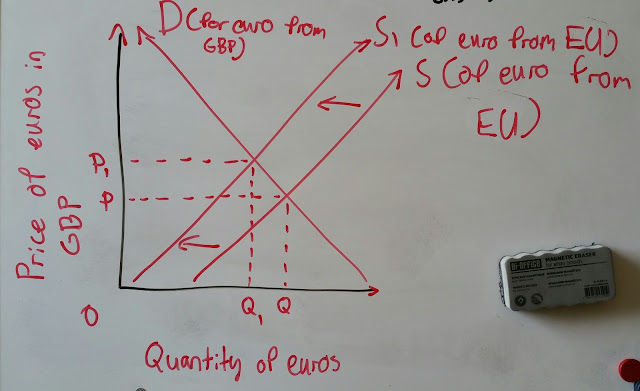 D (for euro from
GBP)
S₁ (of euro from EU)
S (of euro from
EU)
Price of euros in
GBP
P₁
P
O
Q₁ Q
Quantity of euros
BI-OFFICE
MAGNETIC ERASER